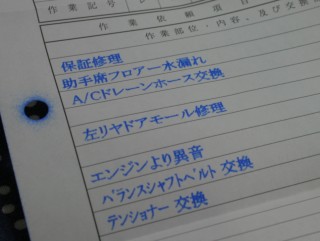 作業記号
作業依頼項目
作業部位・内容、及び交換
保証修理
助手席フロアー水漏れ
A/Cドレーンホース交換
左リヤドアモール修理
エンジンより異音
バランスシャフトベルト 交換
テンショナー 交換